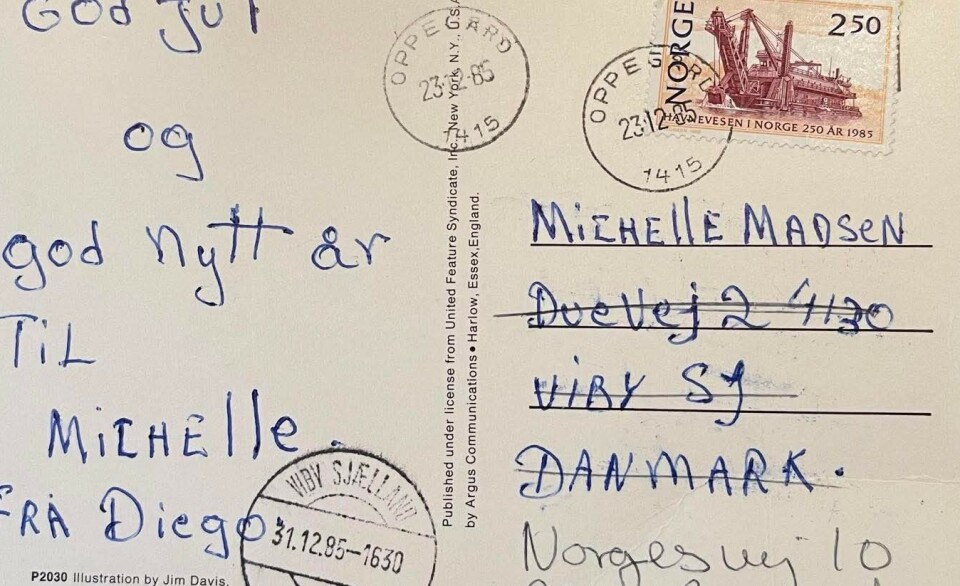 God Jul
og
god nytt år
TiL
MiCHElle.
FRA Diego
P2030 Illustration by Jim Davis.
Published under license from United Feature Syndicate, Inc., New York, N.Y., U.S.A.
by Argus Communications • Harlow, Essex, England.
OPPEGÅRD
23.12.85
1415
OPPEGÅRD
23.12.85
1415
NORGE
250
HAVNEVESEN I NORGE 250 ÅR 1985
MiCHEllE MADSEN
DueVej 2 4130
ViBY SJ
DANMARK.
Norgesvej 10
VIBY SJÆLLAND
31.12.85-1630